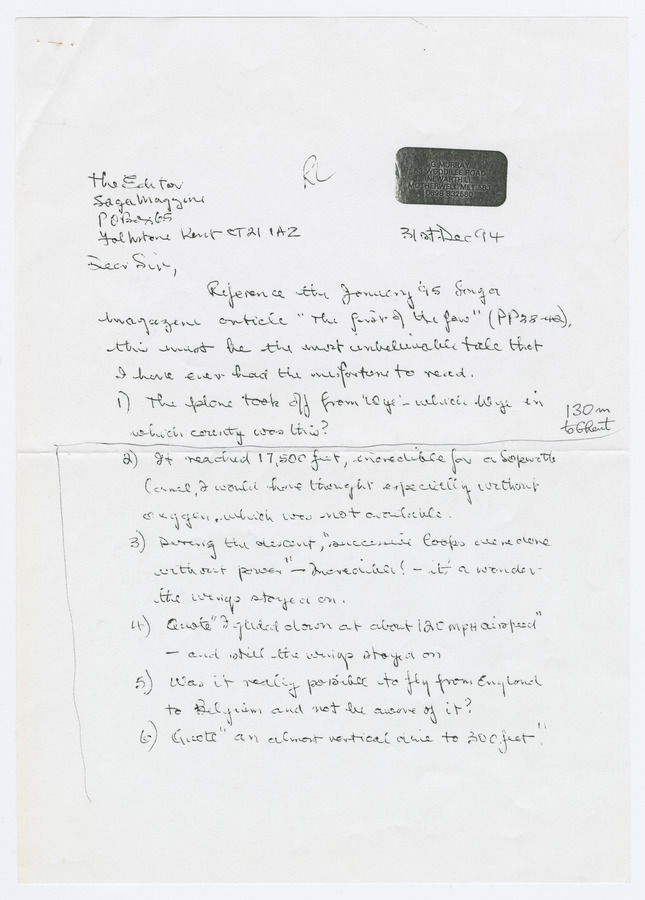 RL
G MURRAY
WOODILEE ROAD
NEWARTHILL
MOTHERWELL ML1
0698 832580
The Editor
Saga Magazine
P O Box 65
Folkstone Kent CT21 1AZ
31st Dec 94
Dear Sir,
Reference the January '95 Saga
Magazine article "The first of the few" (PP38-40),
this must be the most unbelievable tale that
I have ever had the misfortune to read.
1) The plane took off from 'Wye' - which Wye in
which county was this?
130m
to Ghent
2) It reached 17,500 feet, incredible for a Sopwith
Camel, I would have thought especially without
oxygen, which was not available.
3) During the descent, "successive loops were done
without power" - Incredible! - it's a wonder
the wings stayed on.
4) Quote "I glided down at about 120 MPH airspeed"
- and still the wings stayed on
5) Was it really possible to fly from England
to Belgium and not be aware of it?
6) Quote "an almost vertical dive to 300 feet".